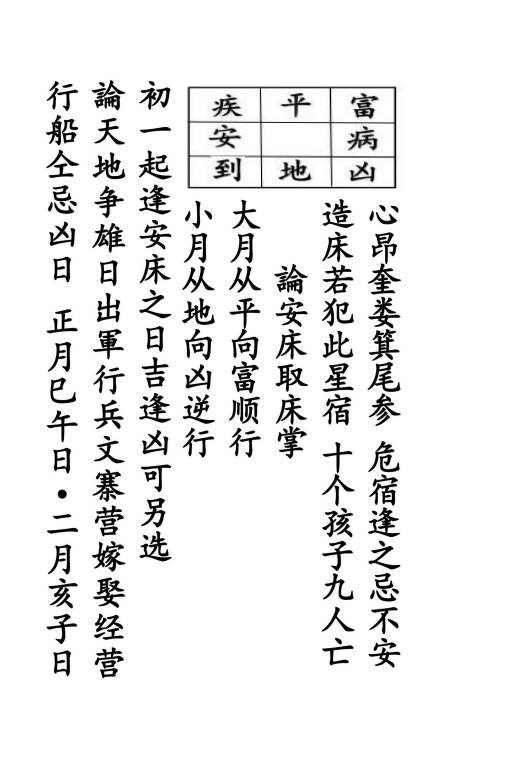 疾 平 富
安 病
到 地 凶
心昂奎娄箕尾参 危宿逢之忌不安
造床若犯此星宿 十个孩子九人亡
論安床取床掌
大月从平向富顺行
小月从地向凶逆行
初一起逢安床之日吉逢凶可另选
論天地争雄日出軍行兵文寨营嫁娶经营
行船仝忌凶日 正月巳午日•二月亥子日